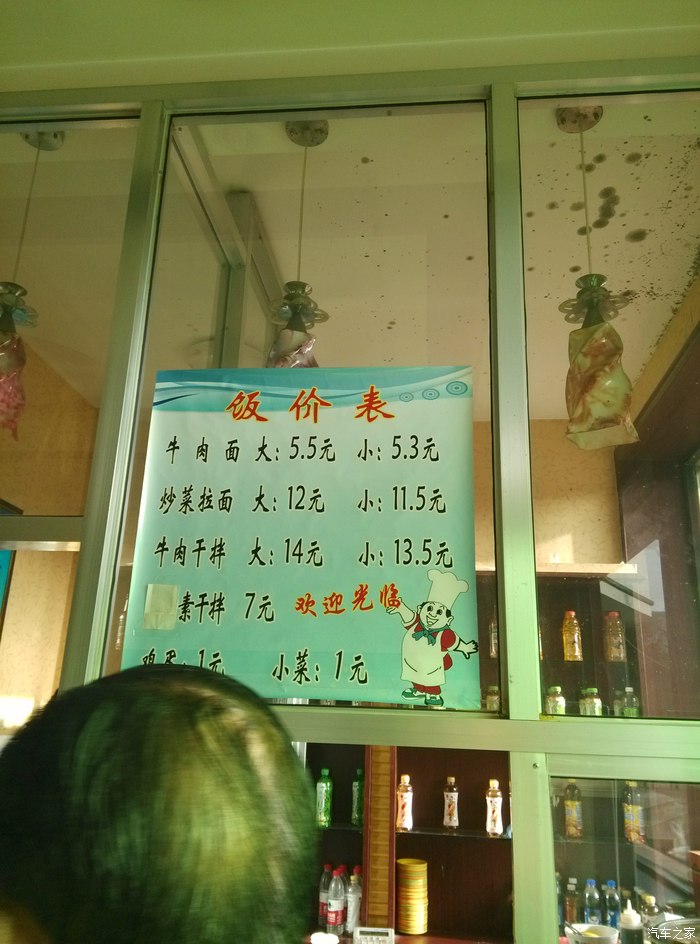 饭价表
牛肉面 大: 5.5元 小: 5.3元
炒菜拉面 大: 12元 小: 11.5元
牛肉干拌 大: 14元 小: 13.5元
素干拌 7元 欢迎光临
鸡蛋: 1元 小菜: 1元
汽车之家